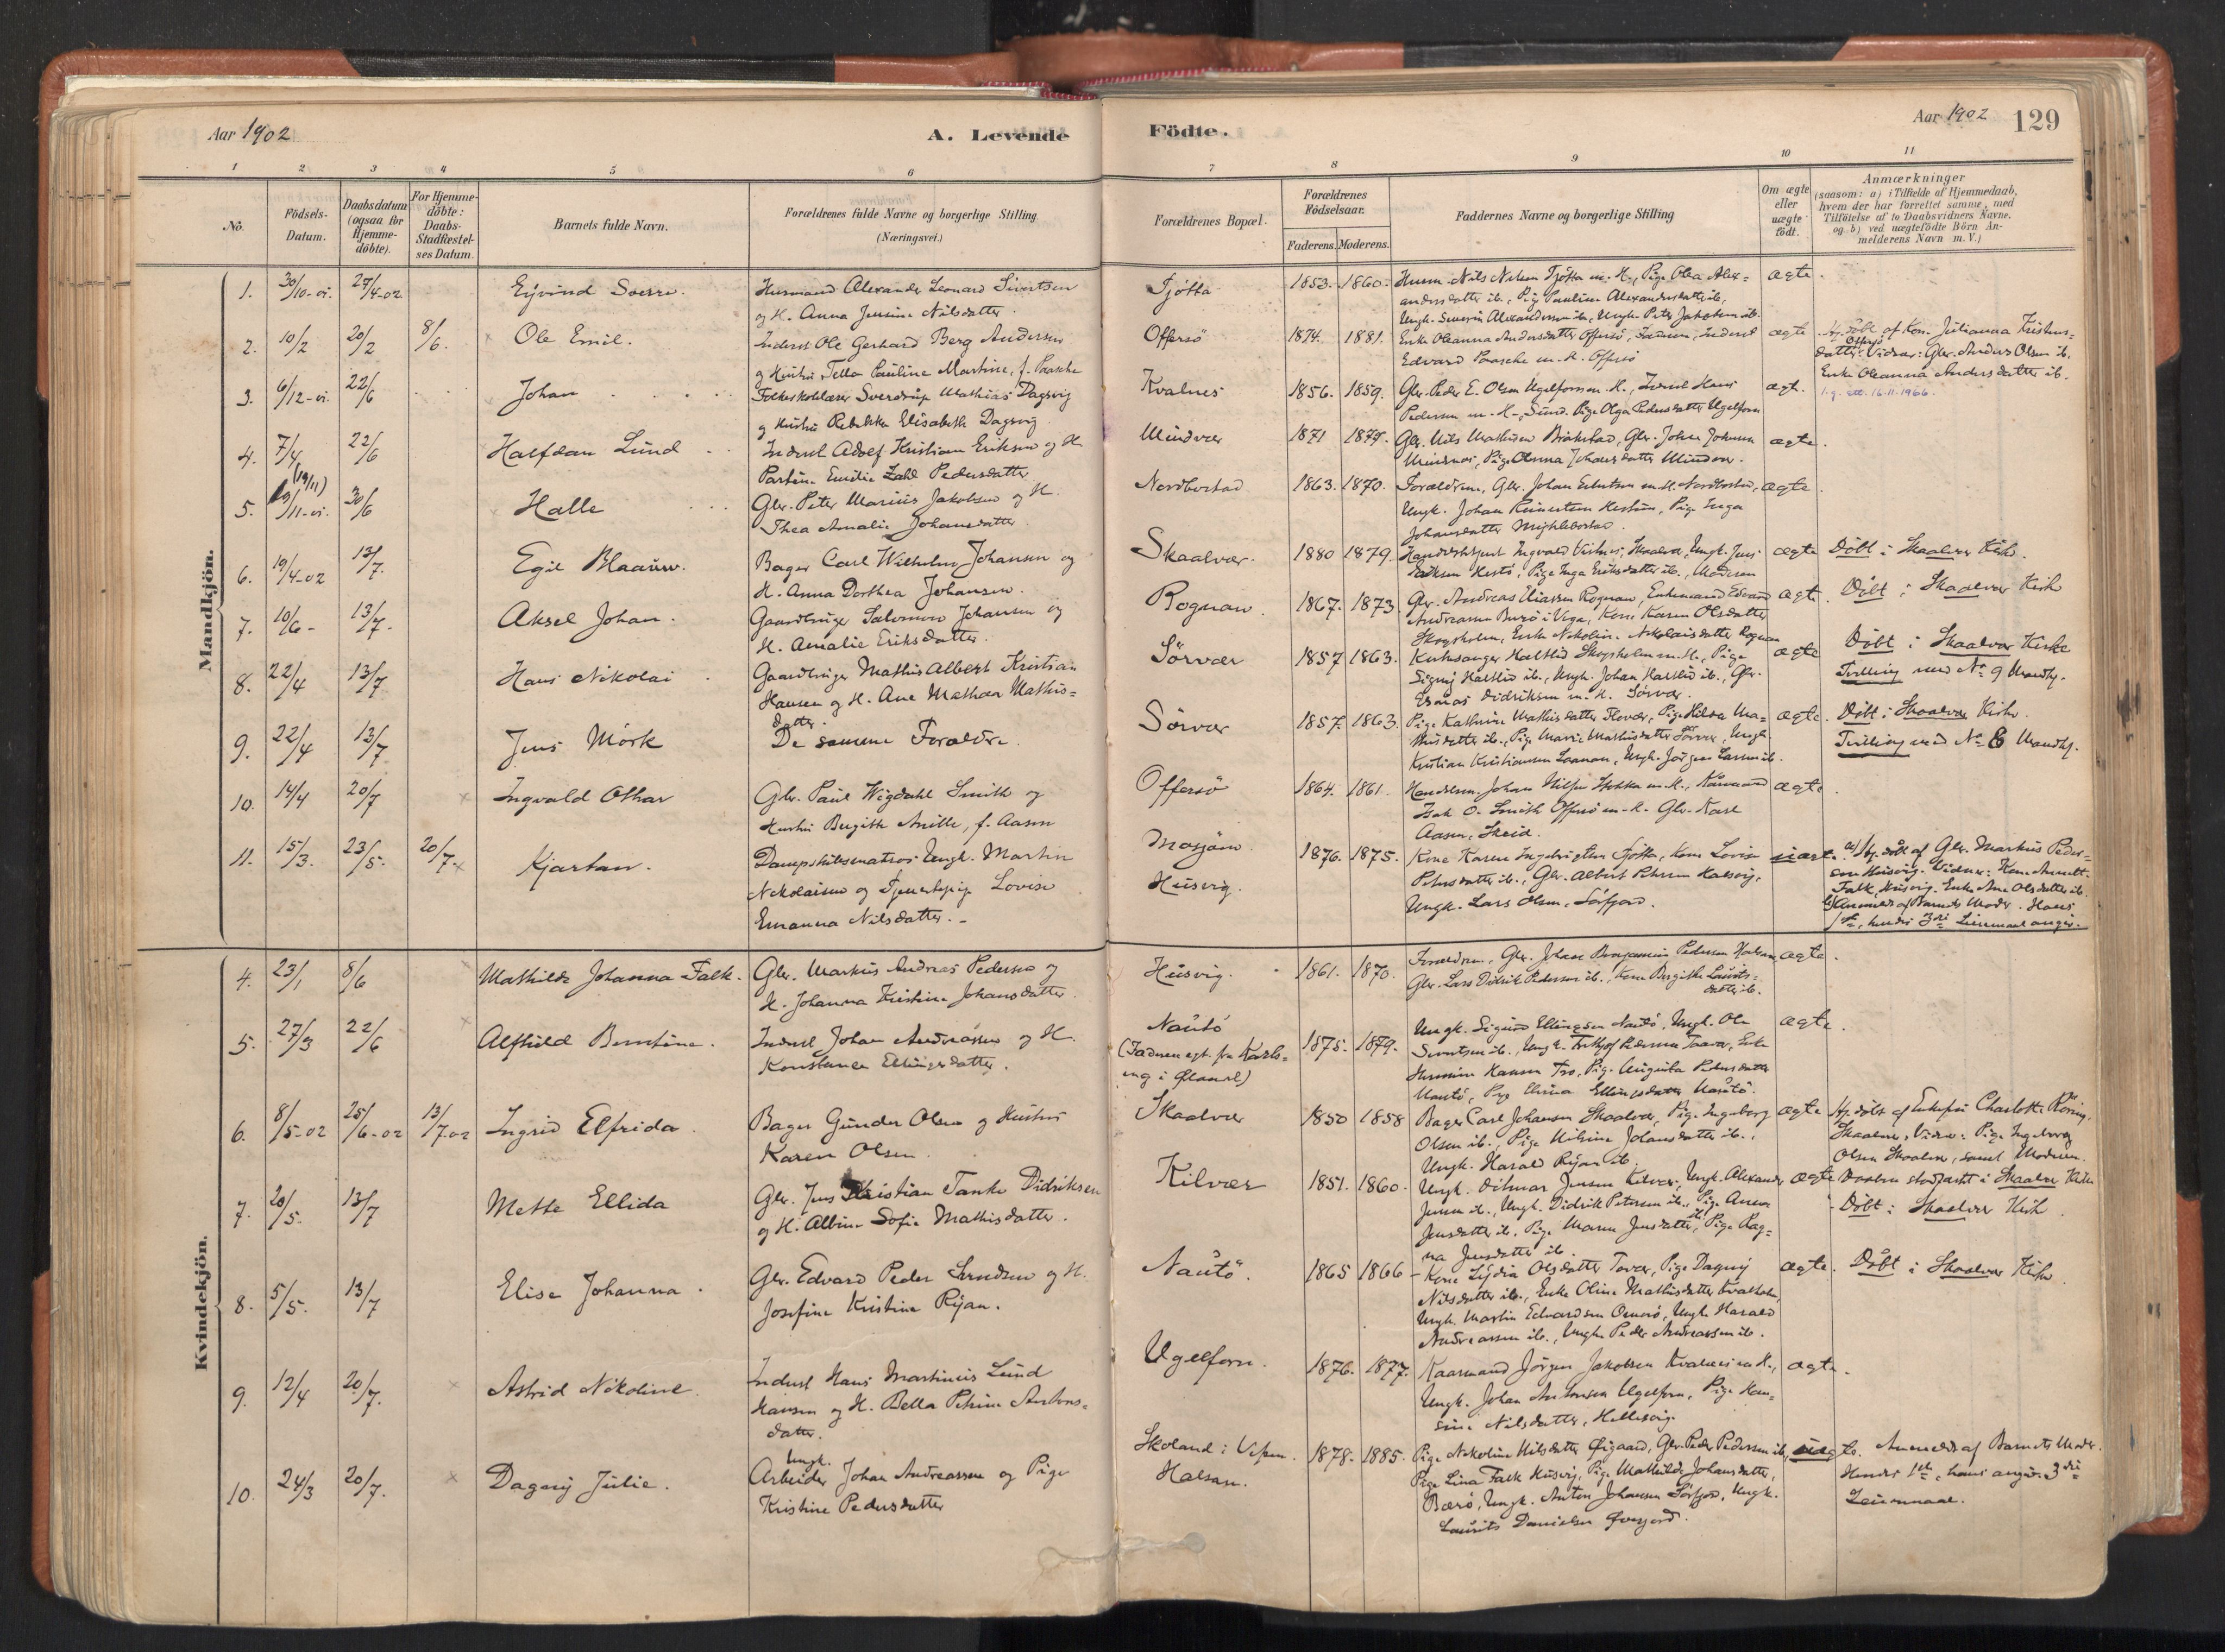 Aar 1902
A. Levende
1 2 3 4 5 6
No.
Födsels-
Datum.
Daabsdatum
(ogsaa for
Hjemme-
döbte).
For Hjemme-
döbte:
Daabs-
Stadfæstel-
ses Datum.
Barnets fulde Navn.
Forældrenes fulde Navne og borgerlige Stilling
(Næringsvei.)
Mandkjön.
1. 30/10-01. 27/4-02 Eyvind Sverre. Husmand Alexander Leonard Sivertsen
og H. Anna Jensine Nilsdatter.
2. 10/2 20/2 8/6. Ole Emil. Inderst Ole Gerhard Berg Andersen
og Hustru Tella Pauline Martine, f. Paasche
3. 6/12-01. 22/6 Johan Folkeskolelærer Sverdrup Mathias Dagsvig
og Hustru Rebekka Elisabeth Dagsvig
4. 7/4 22/6 Halfdan Lund Inderst Adolf Kristian Eriksen og H.
Emilie Zahl Pedersdatter
5. (19/11) /11-01. 30/6 Halle Gbr. Peter Marius Jakobsen og H.
Thea Amalie Johansdatter
6. 19/4-02 13/7. Egil Blaauw. Bager Carl Wilhelm Johansen og
H. Anna Dorthea Johansen.
7. 10/6- 13/7. Aksel Johan. Gaardbruger Salomon Johansen og
H. Amalie Eriksdatter.
8. 22/4 13/7 Hans Nikolai Gaardbruger Mathis Albert Kristian
Hansen og H. Ane Mathea Mathis=
datter.
9. 22/4 13/7 Jens Mörk De samme Forældre.
10. 14/4 20/7 Ingvald Othar Gbr. Paul Wigdahl Smith og
Hustru Birgitte Anille, f. Aasen
11. 15/3. 23/5. 20/7. Kjartan. Dampskibsmatros Ungk. Martin
Nikolaisen og Tjenestepige Lovise
Emanna Nilsdatter.
Kvindekjön.
4. 23/1 8/6 Mathilde Johanna Falk. Gbr. Markus Andreas Pedersen og
H. Johanna Kristine Johansdatter.
5. 27/3 22/6 Alfhild Berntine. Inderst Johan Andreassen og H.
Konstance Ellingsdatter.
6. 8/5-02 25/6-02 13/7-02 Ingrid Elfrida Bager Gunder Olsen og Hustru
Karen Olsen
7. 20/5. 13/7 Mette Ellida Gbr. Jens Kristian Tanke Didriksen
og H. Albine Sofie Mathisdatter.
8. 5/5. 13/7 Elise Johanna. Gbr. Edvard Peder Svendsen og H.
Josefine Kristine Ryan.
9. 12/4 20/7. Astrid Nikoline. Inderst Hans Martinus Lund
Hansen og H. Bella Petrine Antons=
datter.
10. 24/3 20/7. Dagny Julie. Ungk.
Arbeider Johan Andreassen og Pige
Kristine Pedersdatter
Födte.
Aar 1902 129
7 8 9 10 11
Forældrenes Bopæl.
Forældrenes
Födselsaar.
Faderens. Moderens.
Faddernes Navne og borgerlige Stilling
Om ægte
eller
uægte
födt.
Anmærkninger
(saasom: a) i Tilfælde af Hjemmedaab,
hvem der har forrettet samme, med
Tilföielse af to Daabsvidners Navne.
og b) ved uægtefödte Börn An-
melderens Navn m. V.)
Tjötta 1853. 1860. Husm. Nils Nilsen Tjötta m. H., Pige Olea Alex= ægte.
andersdatter ib., Pige Pauline Alexandersdatter ib.,
Ungk. Severin Alexandersen ib., Ungk. Peter Jakobsen ib.
Offersö 1874. 1881. Enke Oleanna Andersdatter Offersö, Inderst ægte Hj. döbt af Kone Julianna Kristens=
Edvard Paasche m. H. Offersö datter Offersö. Vidner: Gbr. Anders Olsen ib.
Enke Oleanna Andersdatter ib.
16-11-1966.
Kvalnes 1856. 1859. Gbr. Peder E. Olsen Ugelforen m. H., Inderst Hans ægte.
Pedersen m. H., Sund. Pige Olga Pedersdatter Ugelforn
Mindvær 1871 Gbr. Nils Mathisen Gbr. Johan Johnsen ægte.
Pige Johansdatter Mindvær.
Nordbostad 1863. 1870. Forældrene, Gbr. Johan m. H. Nordbostad, ægte
Ungk. Johan Pige Inga
Johansdatter
Skaalvær. 1880 1879. Ingvald Skaalvær, Ungk. Jens ægte Döbt i Skaalvær Kirke.
Eriksen Pige Inga Eriksdatter ib., Moderen
Rognan. 1867. 1873. Gbr. Andreas Eliassen Rognan, Enkemand Edvard ægte. Döbt i Skaalvær Kirke
Andreassen i Vega, Kone Karen Olsdatter
Skogsholm, Enke Nikoline Nikolaisdatter Rognan
Sörvær 1857 1863. Kirkesanger Hartvig Skogsholm m. H., Pige ægte Döbt i Skaalvær Kirke
Signy ib., Ungk. Johan ib., Gbr. Tvilling med No. 9 Mandkj.
Didriksen m. H. Sörvær.
Sörvær 1857. 1863. Pige Kathrine Mathisdatter Pige Hilda Ma= ægte. Döbt i Skaalvær Kirke.
thisdatter ib., Pige Marie Mathisdatter Sörvær, Ungk. Tvilling med No. 8 Mandkj.
Kristian Kristiansen Ungk. Jörgen Larsen ib.
Offersö 1864. 1861. Johan m. H., ægte.
O. Smith Offersö m. H. Gbr. Karl
Aasen, Skeid.
Mosjöen. 1876. 1875. Kone Karen Tjötta, Kone Lovise uægte. a) Hj. döbt af Gbr. Markus Peder=
Husvig. Petersdatter ib., Gbr. Albert Petersen Kalsvig, sen Husvig. Vidner: Kone
Ungk. Lars Olsen, Sörfjord. Falk, Husvig. Enke Ane Olsdatter ib.
b) Anmeldt af Barnets Moder. Hans
1ste, hendes 3die Leiermaal angiv.
Husvig. 1861. 1870. Forældrene, Gbr. Johan Benjamin Pedersen ægte.
Gbr. Lars Didrik Pedersen ib., Kone Birgitte Laurits=
datter ib.
Nautö 1875. 1879. Ungk. Sigurd Ellingsen Nautö, Ungk. Ole ægte.
(Faderen egtl. fra Sivertsen ib., Ungk. Pedersen Enke
Hansen Tro, Pige Augusta Pedersdatter
Nautö, Pige Ellingsdatter Nautö.
Skaalvær 1850 1858 Bager Carl Johansen Skaalvær, Pige Ingeborg ægte Hj. döbt af Enkefru Charlotte
Olsen ib., Pige Johansdatter ib., Skaalvær, Vidner: Pige Ingeborg
Ungk. Harald Ryan ib. Olsen Skaalvær, samt Moderen.
Daaben stadfæstet i Skaalvær Kirke
Kilvær 1851. 1860. Ungk. Ditmar Jensen Kilvær, Ungk. Alexander ægte Döbt i Skaalvær Kirke.
Jensen ib., Ungk. Didrik Petersen ib., Pige Anna
Jensdatter ib. Pige Maren Jensdatter ib., Pige Rag=
na Jensdatter ib.
Nautö. 1865 1866 Kone Lydia Olsdatter Tovær, Pige Dagny ægte. Döbt i Skaalvær Kirke
Nilsdatter ib., Enke Oline Mathisdatter Kvalholm,
Ungk. Martin Edvardsen Ungk. Harald
Andreassen ib., Ungk. Peder Andreassen ib.
Ugelforn. 1876. 1877. Kaarmand Jörgen Jakobsen Kvalnes m. H., ægte.
Ungk. Johan Antonsen Ugelforn, Pige Han=
sine Nilsdatter, Hellesvig.
Skoland i Vefsen. 1878. 1885. Pige Nikoline Nilsdatter Gbr. Peder Pedersen ib., uægte. Anmeldt af Barnets Moder.
Halsan. Pige Lina Falk Husvig, Pige Mathilde Johansdatter, Hendes 1ste, hans angiv. 3die
Bærö, Ungk. Anton Johansen Sörfjord, Ungk. Leiermaal.
Laurits Danielsen